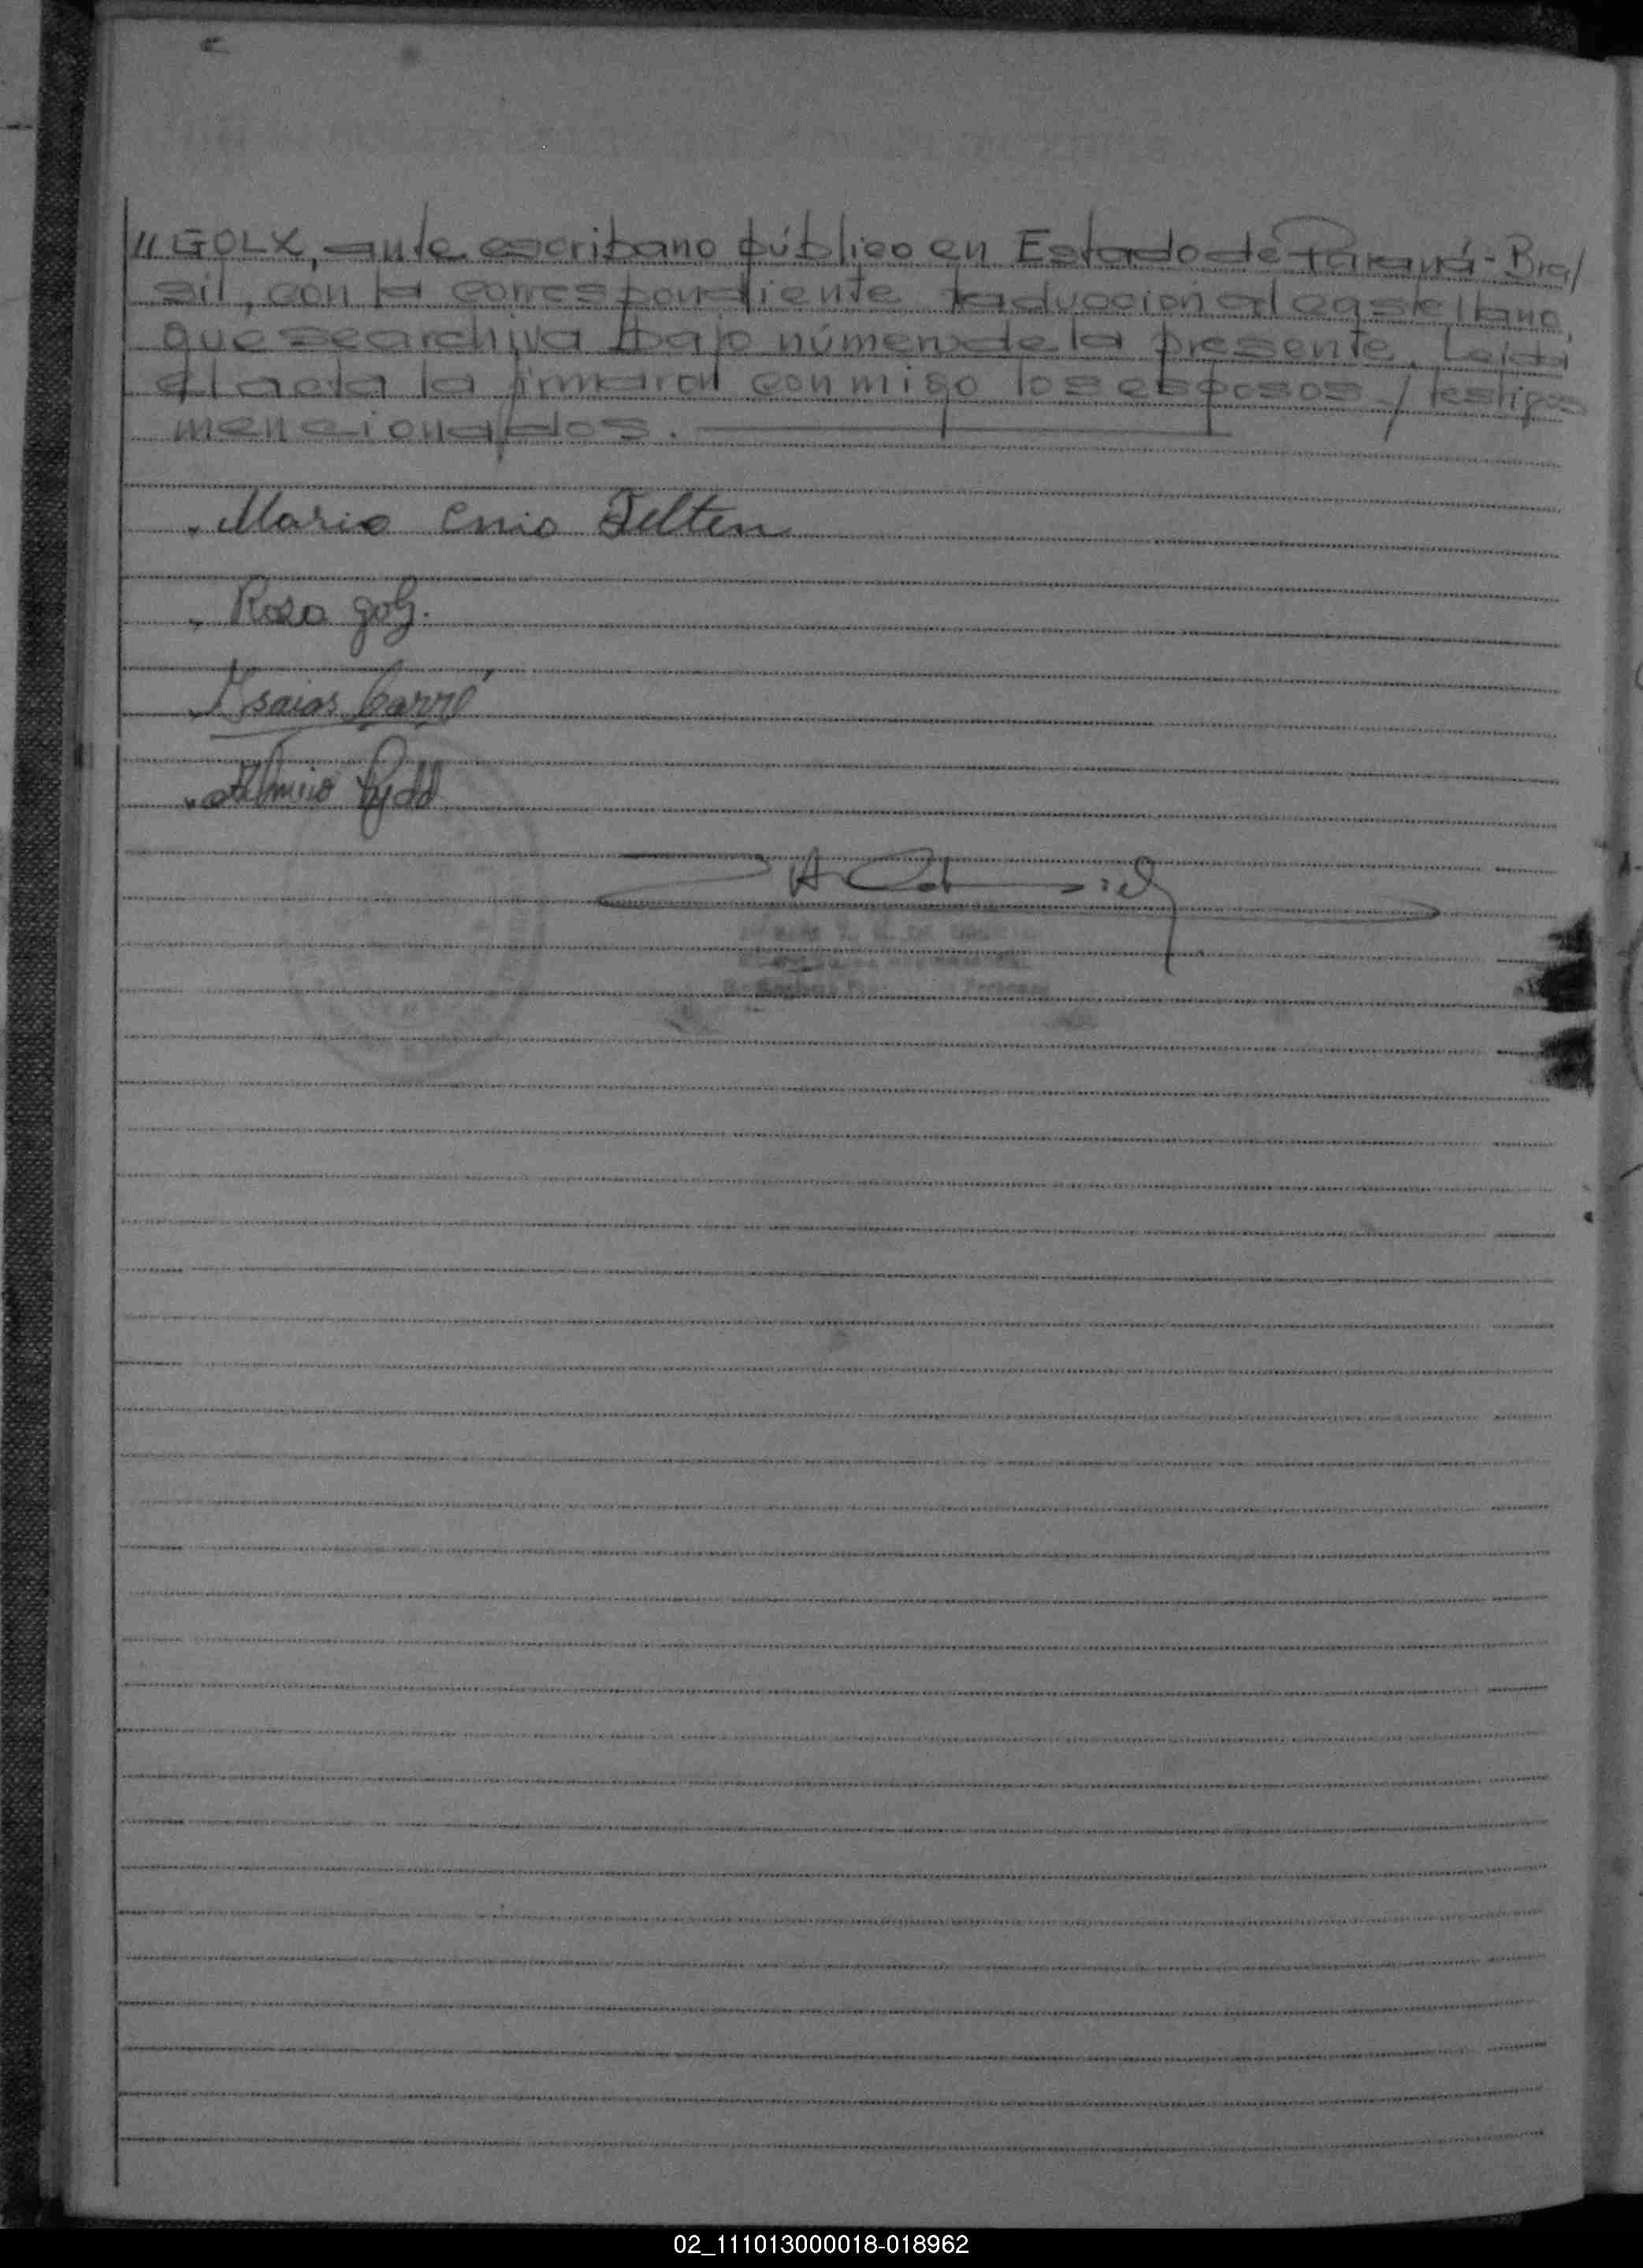 // GOLX, ante escribano público en Estado de Paraná - Bra/
sil, con la correspondiente traducción al castellano,
que se archiva bajo número de la presente. Leída
el acta la firmaron conmigo los esposos y testigos
mencionados.
Mario Enio Felten
Rosa golz.
Isaias Carré
02_111013000018-018962